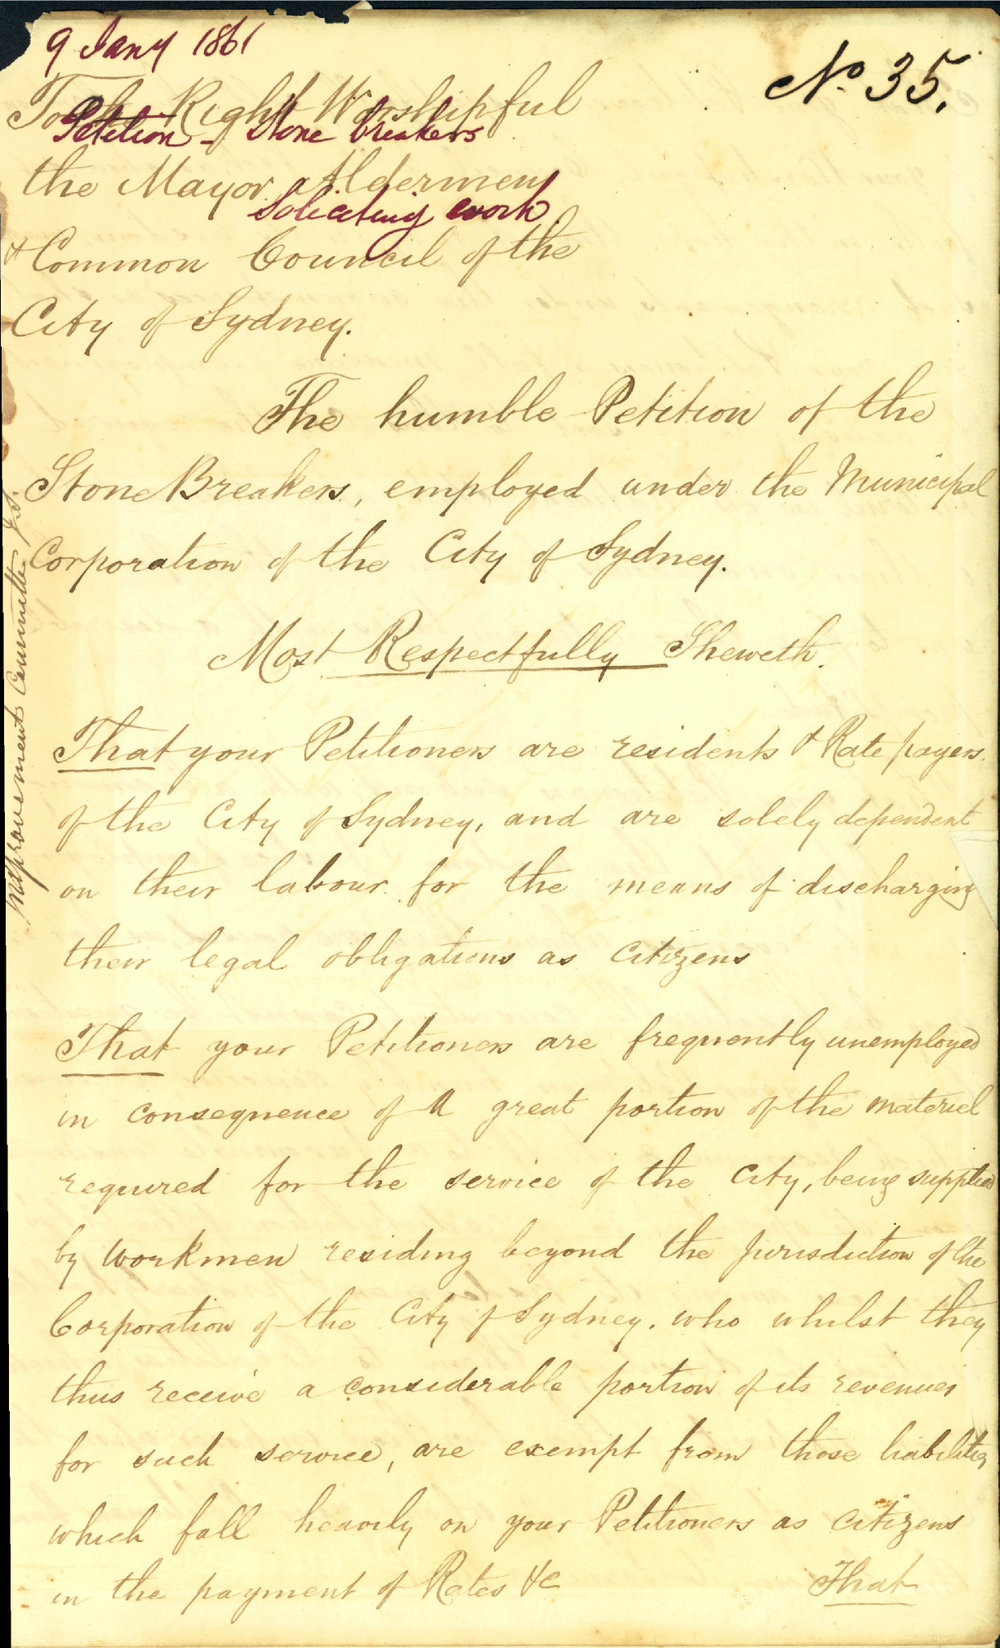 9 Jany 1861
No. 35.
To the Right Worshipful
Petition - Stone breakers
the Mayor Aldermen
Soliciting work
& Common Council of the
City of Sydney.
The humble Petition of the
Stone Breakers, employed under the Municipal
Corporation of the City of Sydney.
Most Respectfully Sheweth.
That your Petitioners are residents & Rate payers
of the City of Sydney, and are solely dependent
on their labour for the means of discharging
their legal obligations as Citizens
That your Petitioners are frequently unemployed
in consequence of a great portion of the materiel
required for the service of the City, being supplied
by workmen residing beyond the Jurisdiction of the
Corporation of the City of Sydney. who whilst they
thus receive a considerable portion of its revenues
for such service, are exempt from those liabilities
which fall heavily on your Petitioners as Citizens
in the payment of Rates &c
That
Improvement Committee